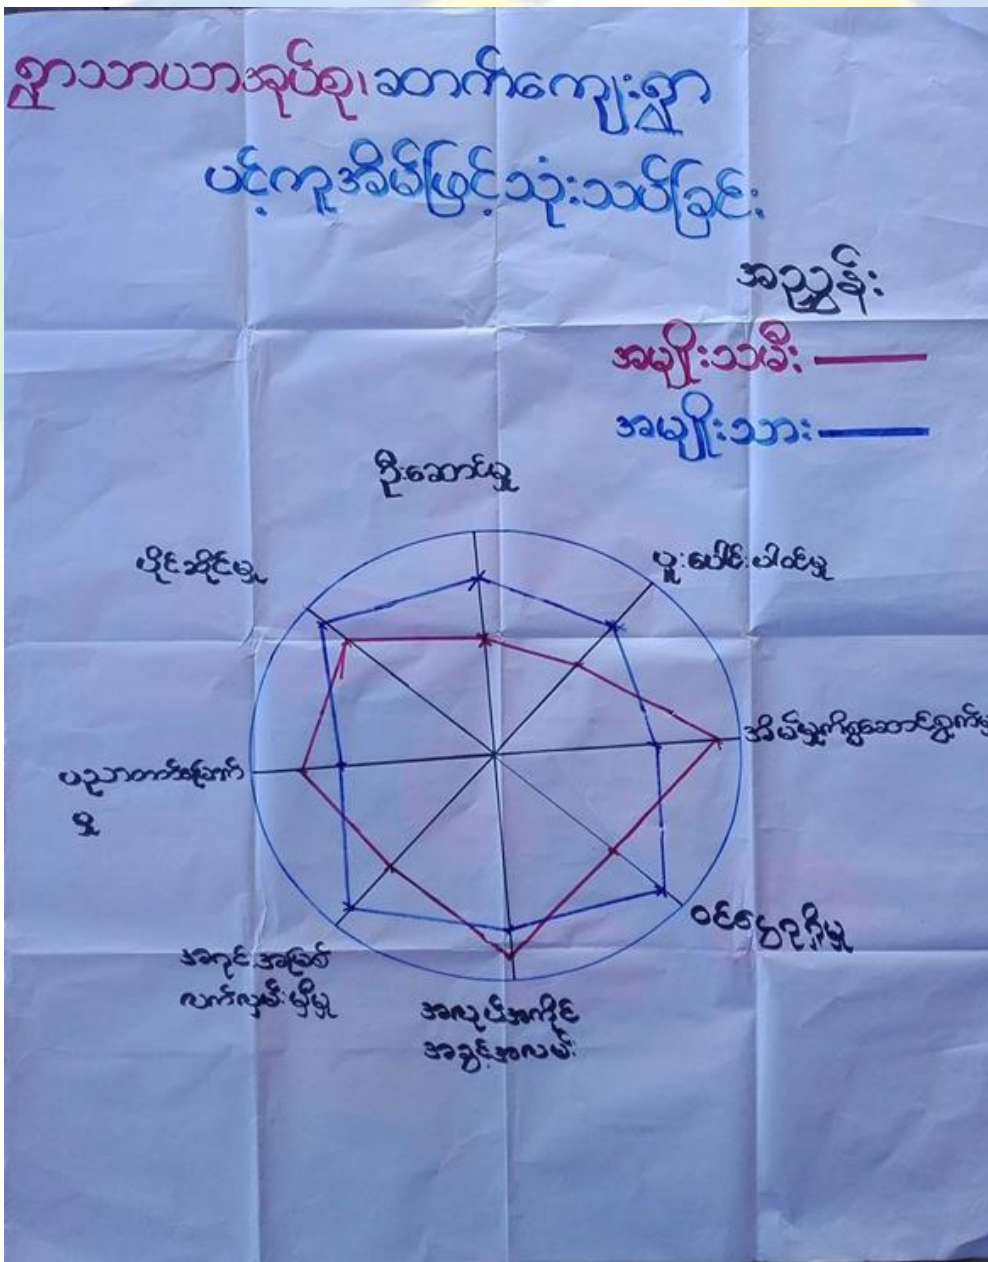 ရွာသာယာအုပ်စု၊ ဆာက်ကျေးရွာ
ပင့်ကူအိမ်ဖြင့်သုံးသပ်ခြင်း
အညွှန်း
အမျိုးသမီး
အမျိုးသား
ဦးဆောင်မှု
ပိုင်ဆိုင်မှု
ပူးပေါင်းပါဝင်မှု
အိမ်မှုကိစ္စဆောင်ရွက်မှု
ဝင်ငွေရရှိမှု
အလုပ်အကိုင်
အခွင့်အလမ်း
အရင်းအမြစ်
လက်လှမ်းမှီမှု
ပညာတတ်မြောက်
မှု